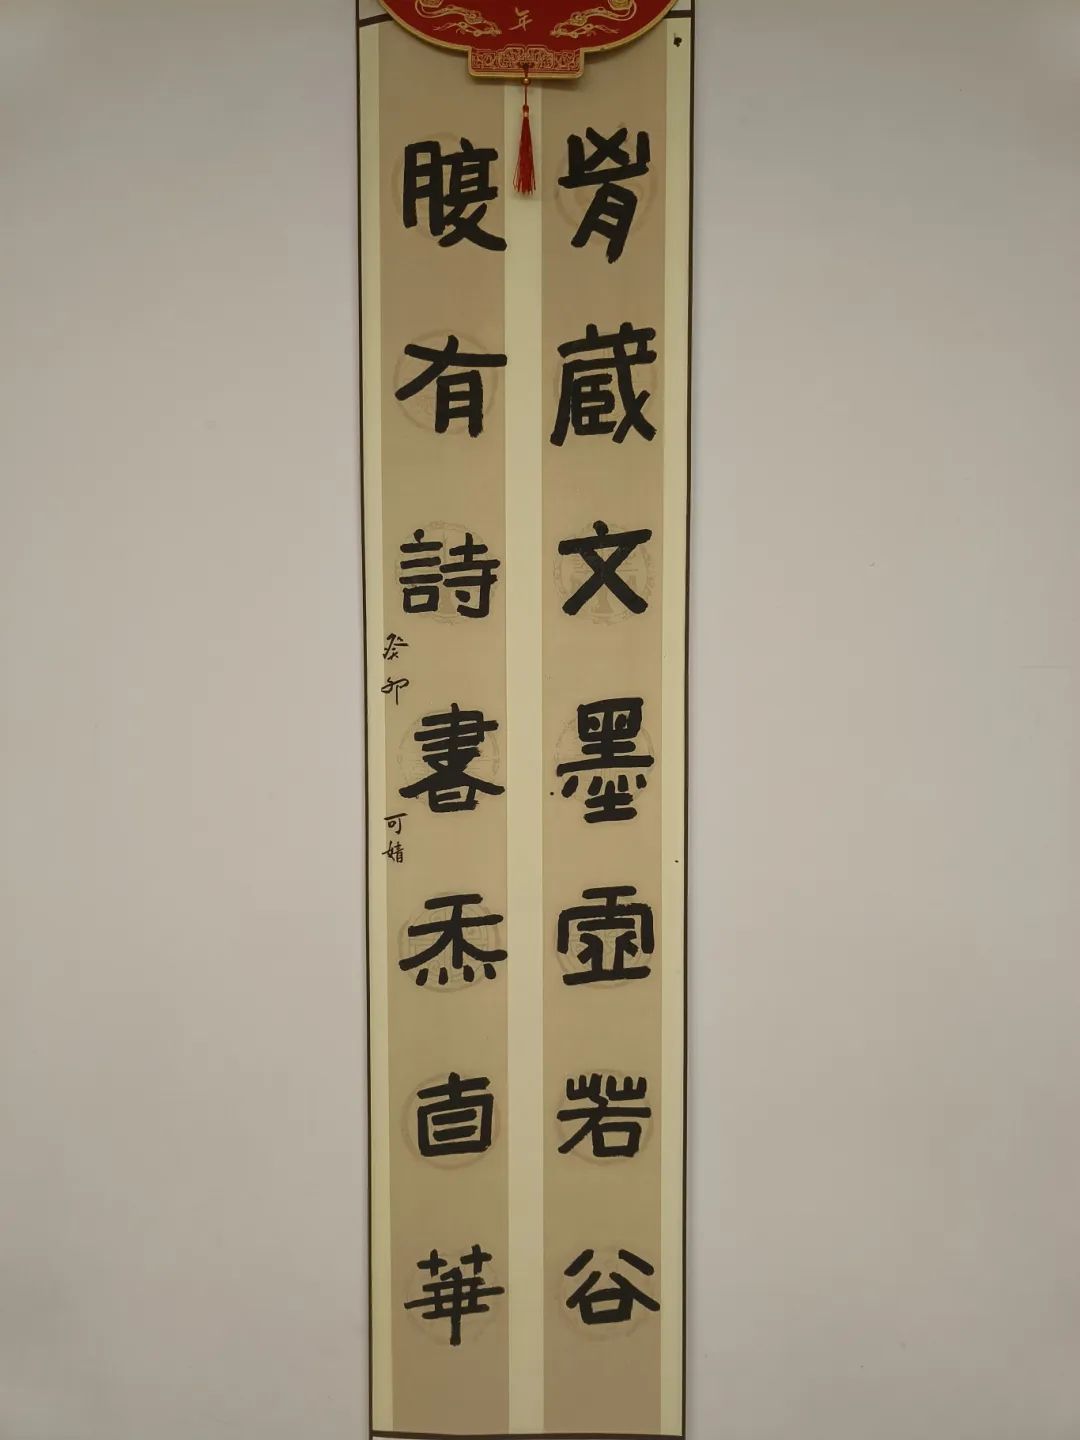 年
胷蔵文墨虛若谷
腹有詩書炁自華
癸卯
可婧